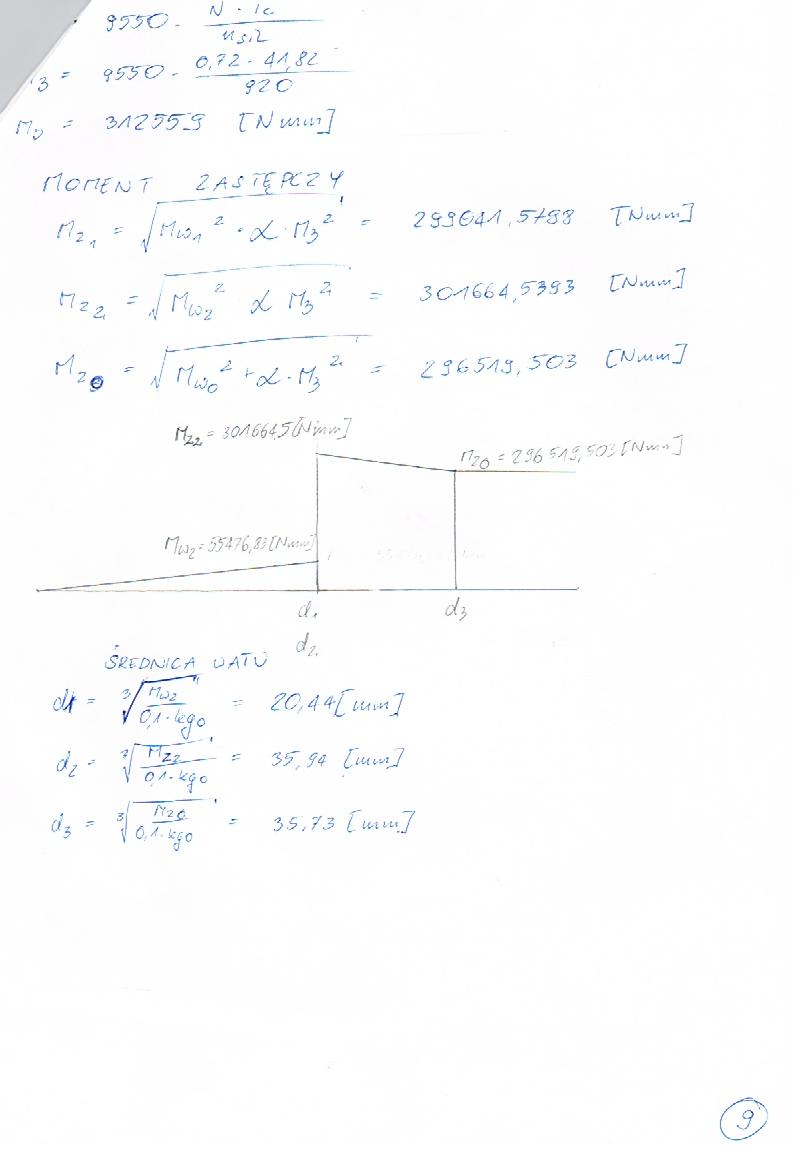 9550 · N · ic / nsil
3 = 9550 · 0,72 · 41,82 / 920
M3 = 312559 [Nmm]
MOMENT ZASTĘPCZY
Mz1 = √Mω1² · α · M3² = 299041,5798 [Nmm]
Mz2 = √Mω2² α M3² = 301664,5393 [Nmm]
Mz0 = √Mω0² + α · M3² = 296519,503 [Nmm]
Mz2 = 301664,5 [Nmm]
Mz0 = 296519,503 [Nmm]
Mω2 = 55476,83 [Nmm]
d1 d3
d2
ŚREDNICA WAŁU
d1 = ³√Mω2 / 0,1·kgo = 20,44 [mm]
d2 = ³√Mz2 / 0,1·kgo = 35,94 [mm]
d3 = ³√Mz0 / 0,1·kgo = 35,73 [mm]
9